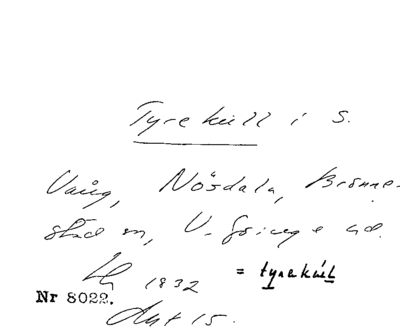 Tyrekull i S.
Vång, Nösdala, Brönne-
stad sn, V. Göinge hd.
1832 = tyrekull
Nr 8022.
15.